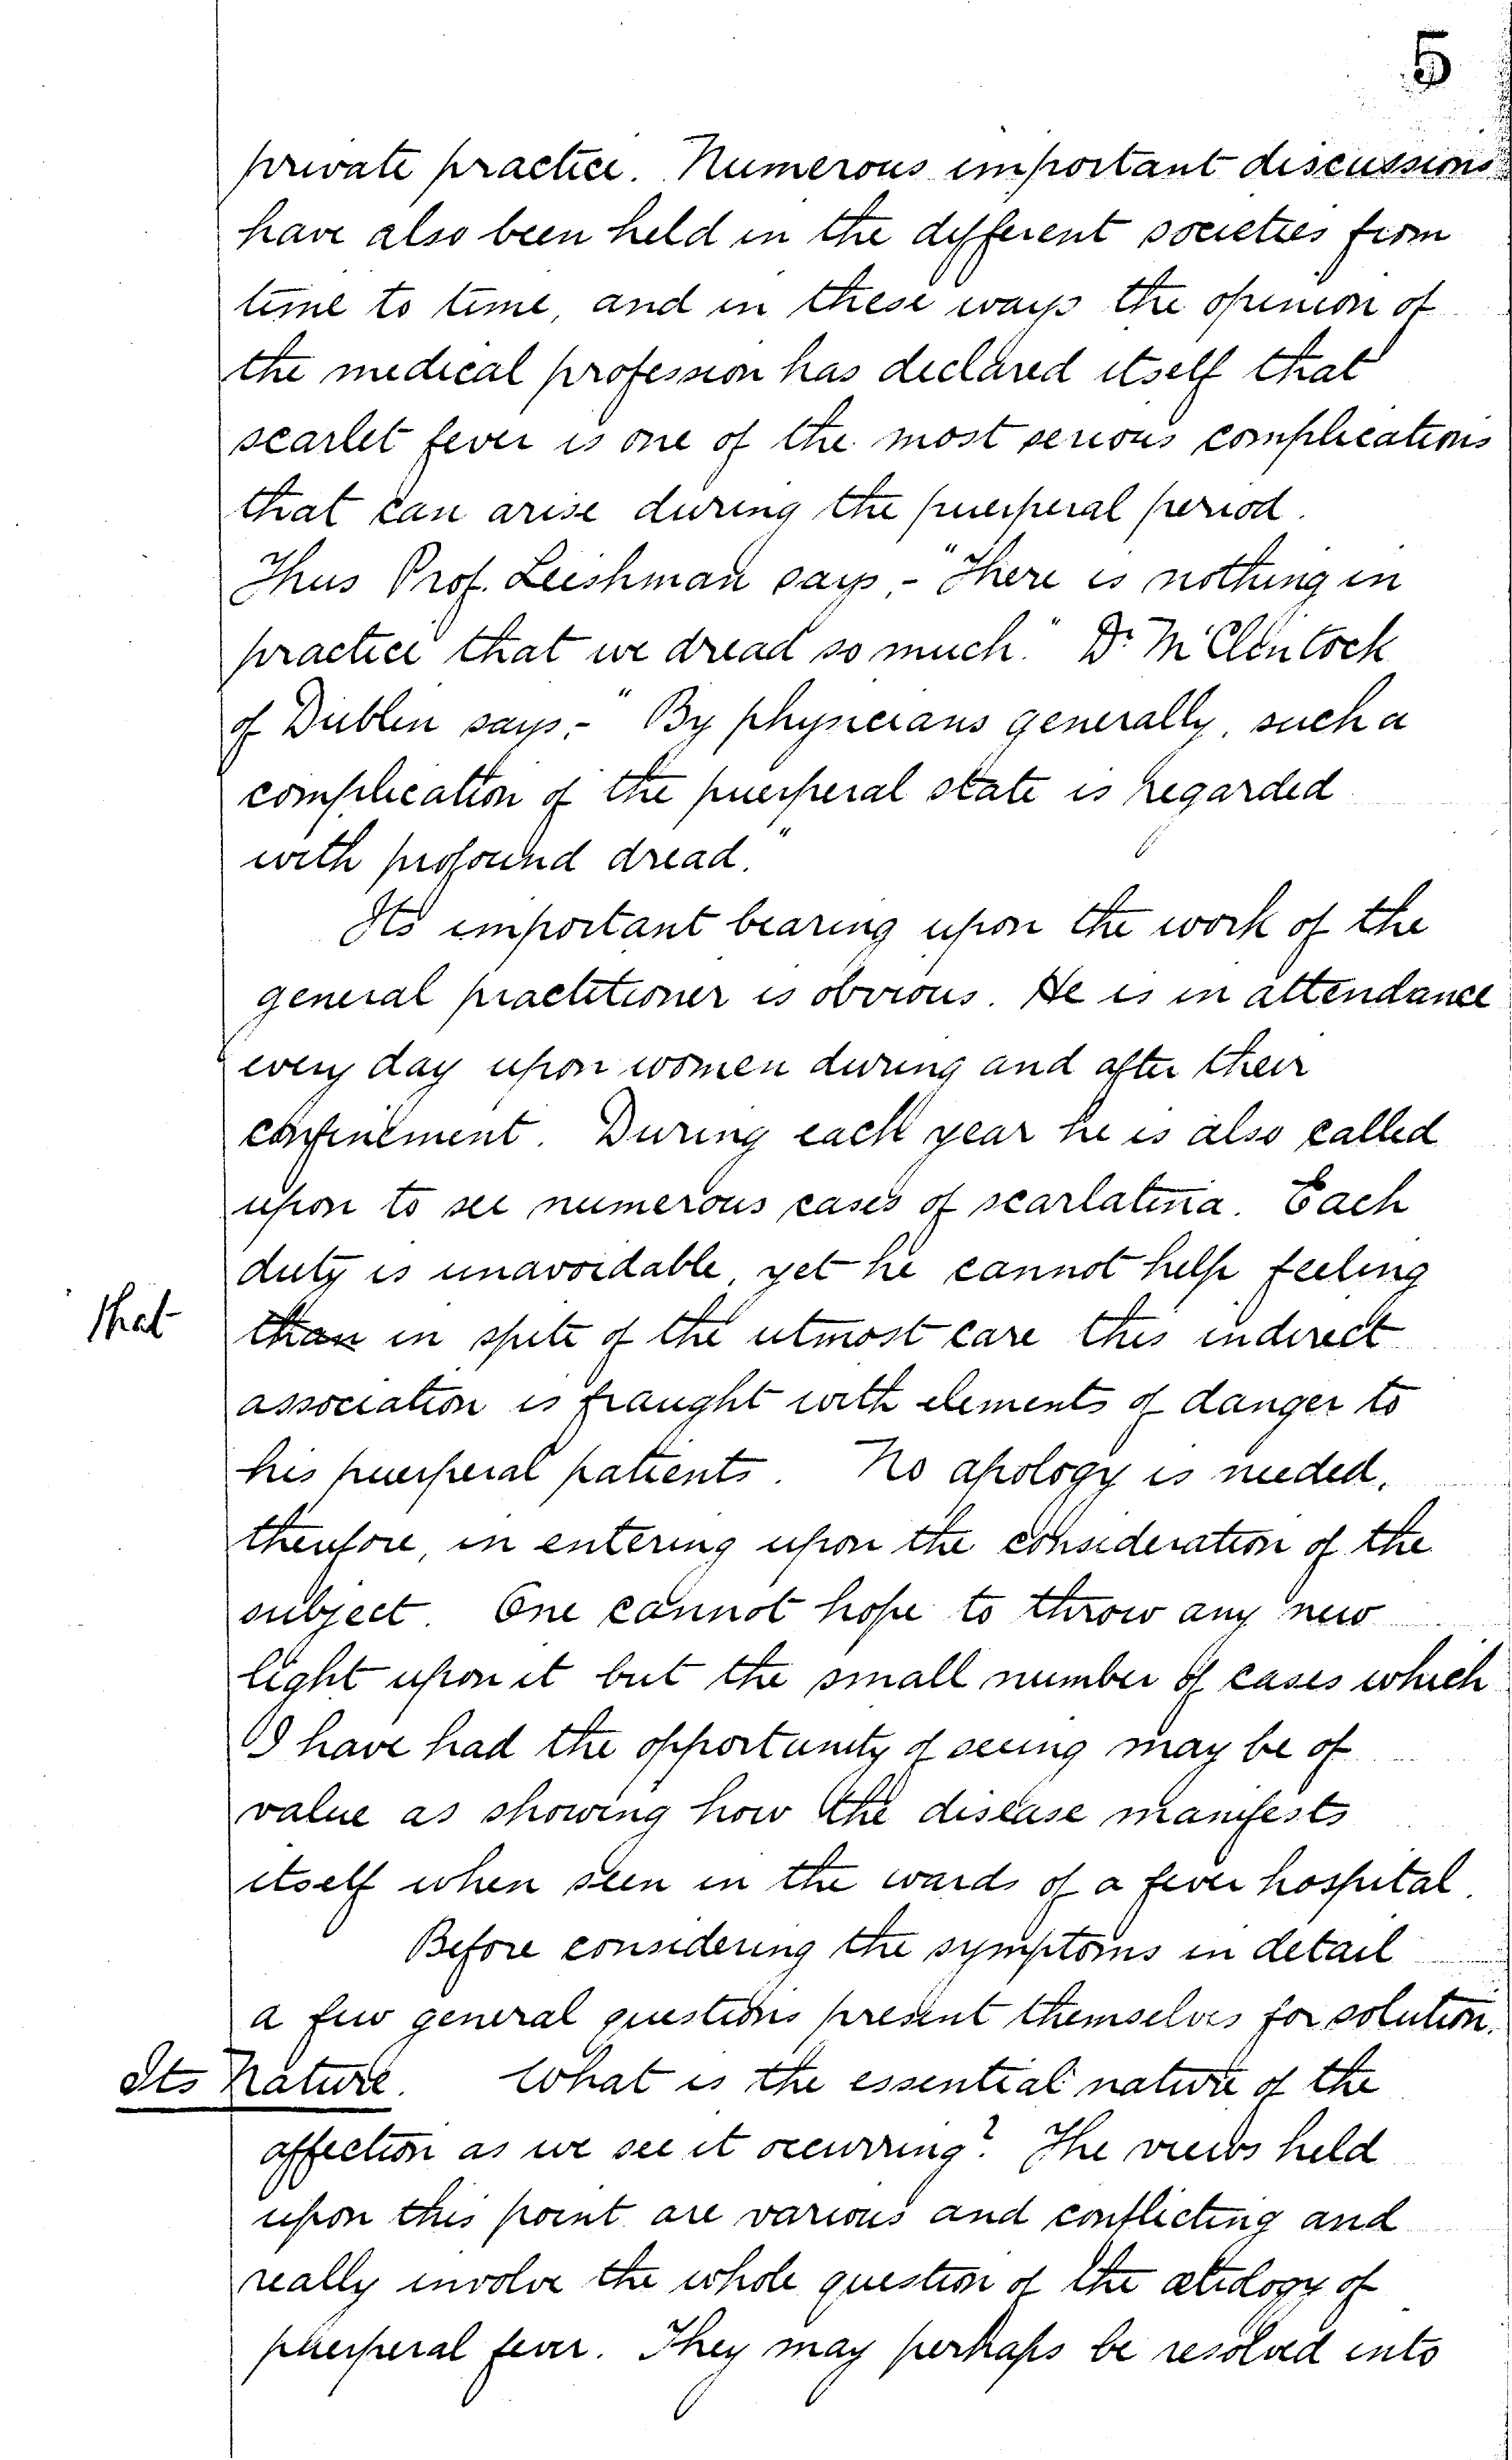 5
private practice. Numerous important discussions
have also been held in the different societies from
time to time, and in these ways the opinion of
the medical profession has declared itself that
scarlet fever is one of the most serious complications
that can arise during the puerperal period.
Thus Prof. Leishman says,- "There is nothing in
practice that we dread so much." Dr. McClintock
of Dublin says,- "By physicians generally, such a
complication of the puerperal state is regarded
with profound dread."
Its important bearing upon the work of the
general practitioner is obvious. He is in attendance
every day upon women during and after their
confinement. During each year he is also called
upon to see numerous cases of scarlatina. Each
duty is unavoidable, yet he cannot help feeling
that than in spite of the utmost care this indirect
association is fraught with elements of danger to
his puerperal patients. No apology is needed,
therefore, in entering upon the consideration of the
subject. One cannot hope to throw any new
light upon it but the small number of cases which
I have had the opportunity of seeing may be of
value as showing how the disease manifests
itself when seen in the wards of a fever hospital.
Before considering the symptoms in detail
a few general questions present themselves for solution.
Its Nature. What is the essential nature of the
affection as we see it occurring? The views held
upon this point are various and conflicting and
really involve the whole question of the ætiology of
puerperal fever. They may perhaps be resolved into